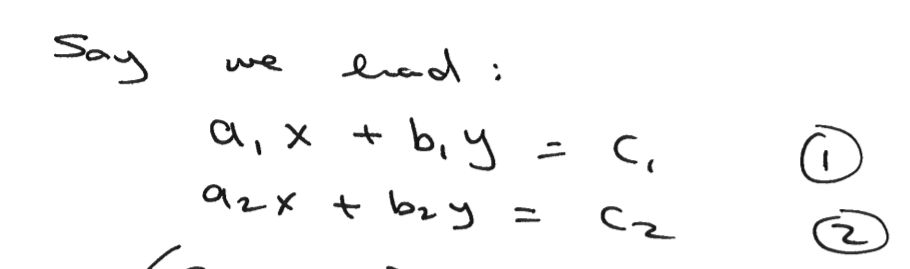 Say we had :
a₁x + b₁y = c₁ ①
a₂x + b₂y = c₂ ②